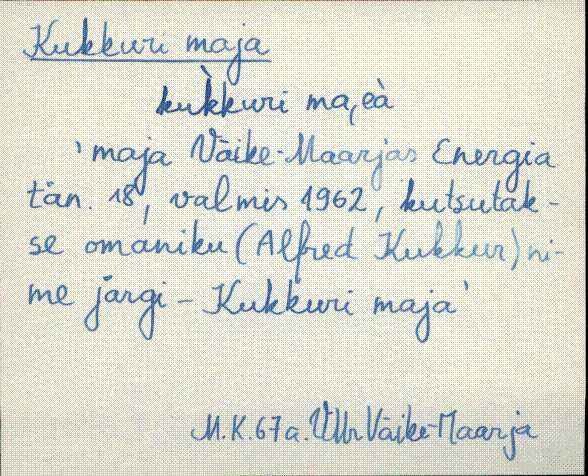 Kukkuri maja
kùkkuri ma,eà
'maja Väike-Maarjas Energia
tän. 18, valmis 1962, kutsutak-
se omaniku (Alfred Kukkur) ni-
me järgi - Kukkuri maja'
M.K. 67a. Väike-Maarja